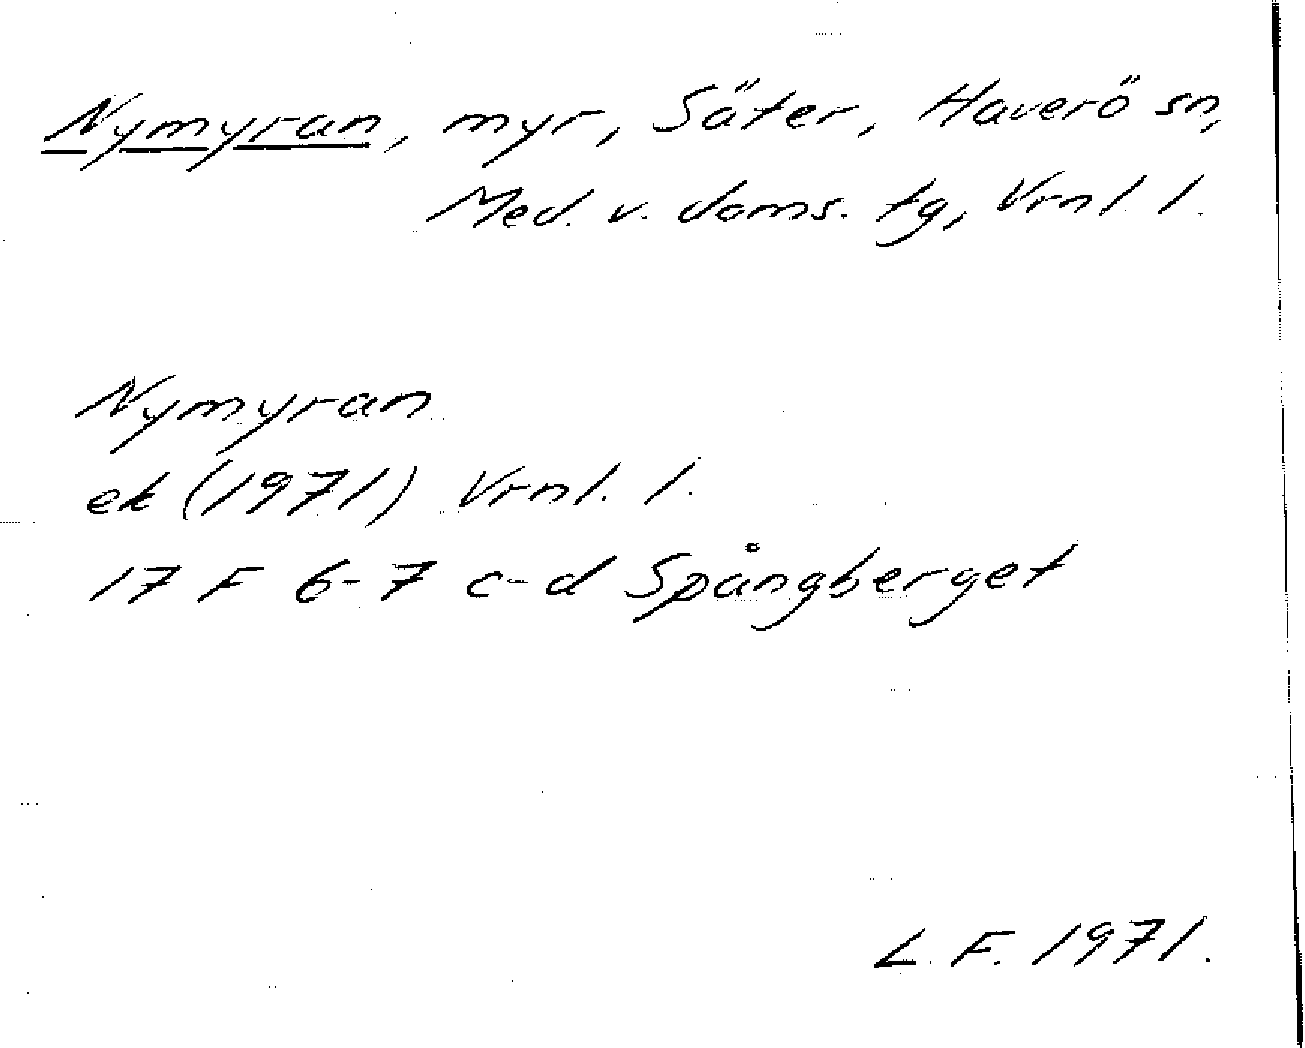 Nymyran, myr, Säter, Haverö sn,
Med. v. doms. tg, Vrnl. l.
Nymyran
ek (1971) Vrnl. l.
17 F 6-7 c-d Spångberget
L. F. 1971.